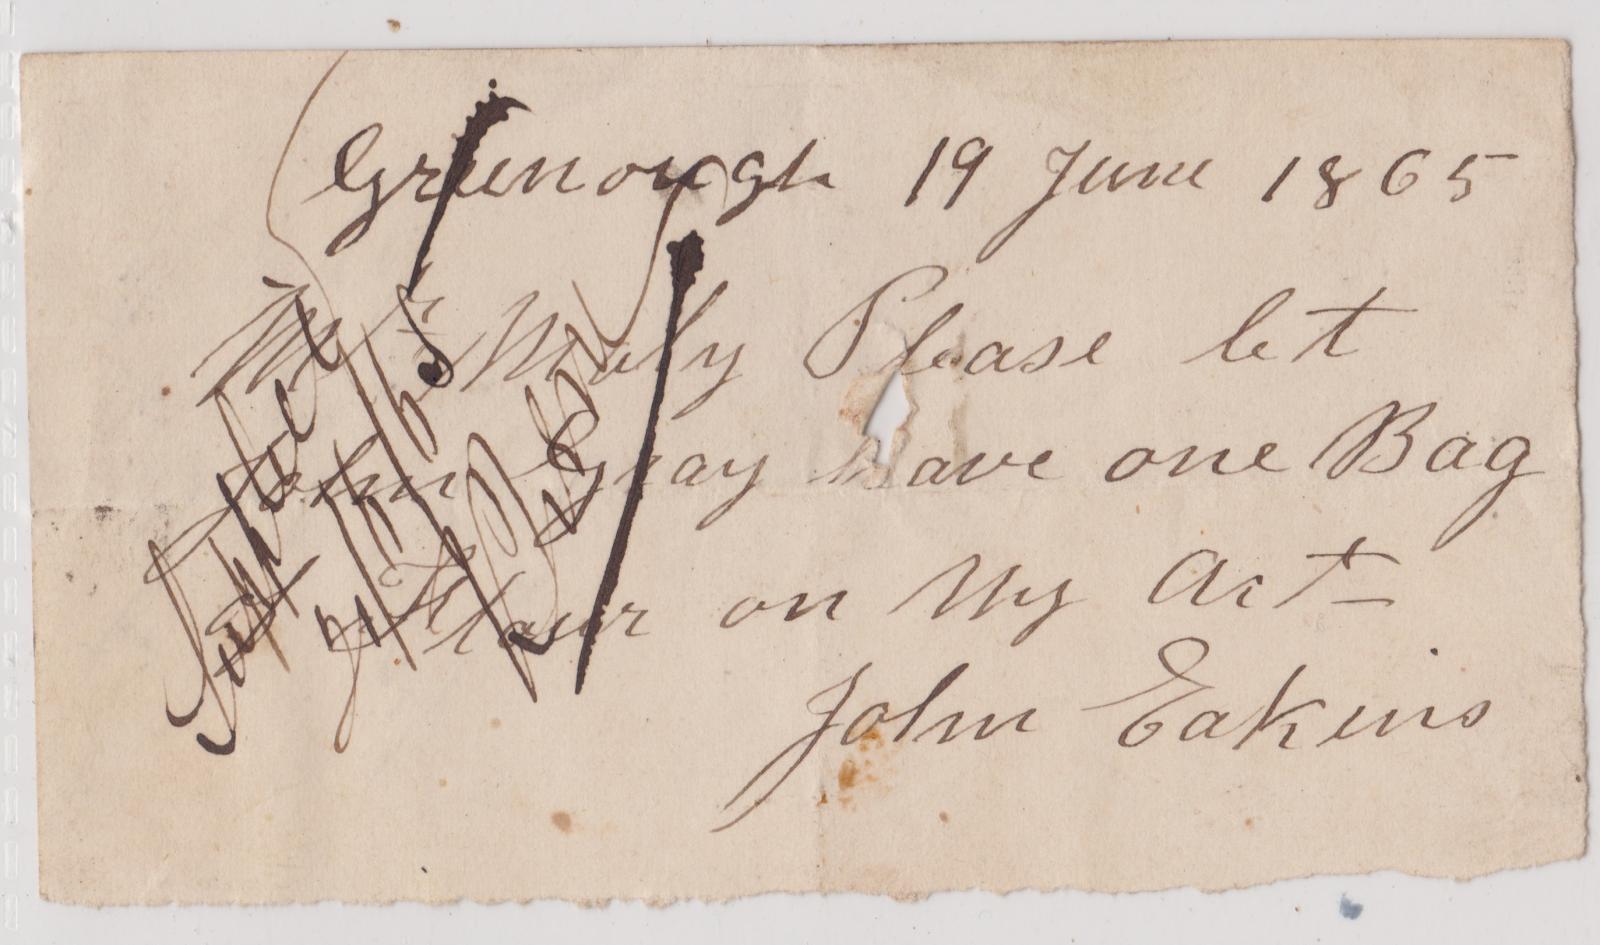 Greenough 19 June 1865
Mr Please let
John Gray have one Bag
of Flour on My Act
John Eakins
Supplied